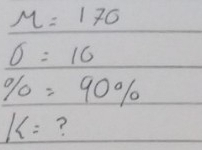 M = 170
σ = 10
% = 90%
K = ?